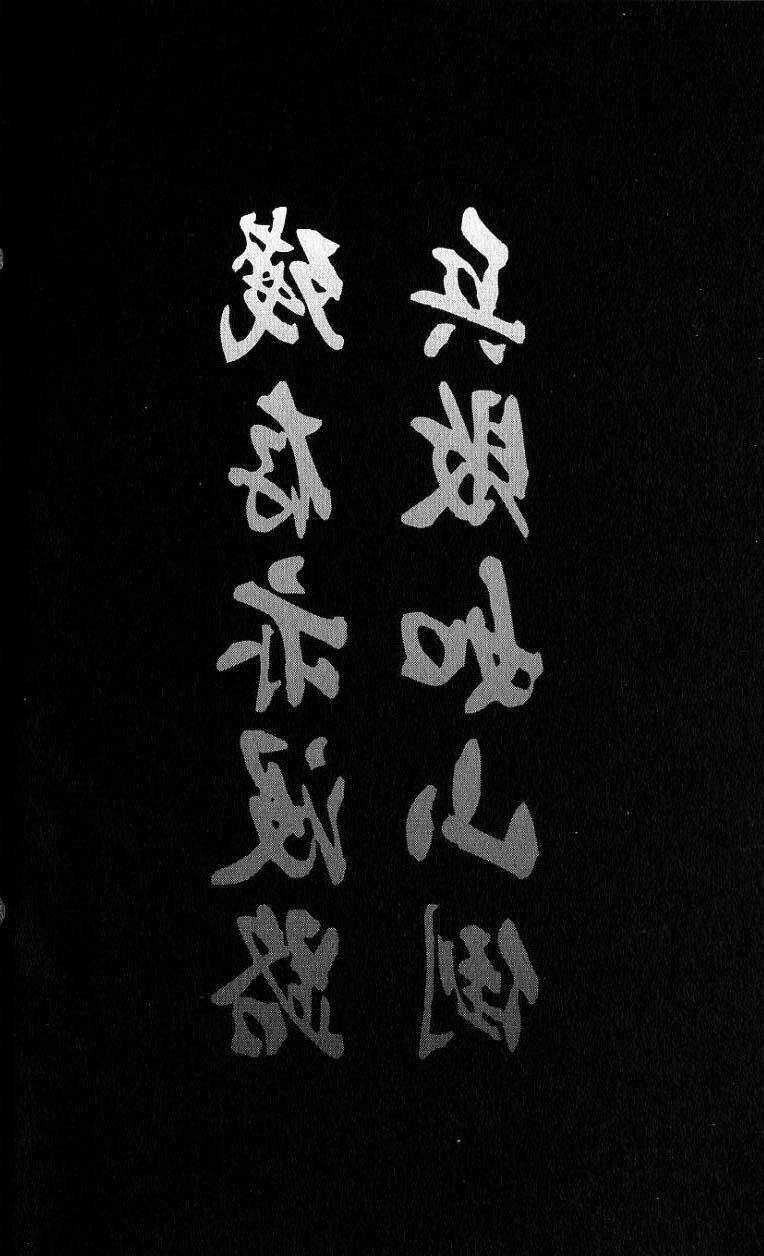 殘存路
兵敗如山倒